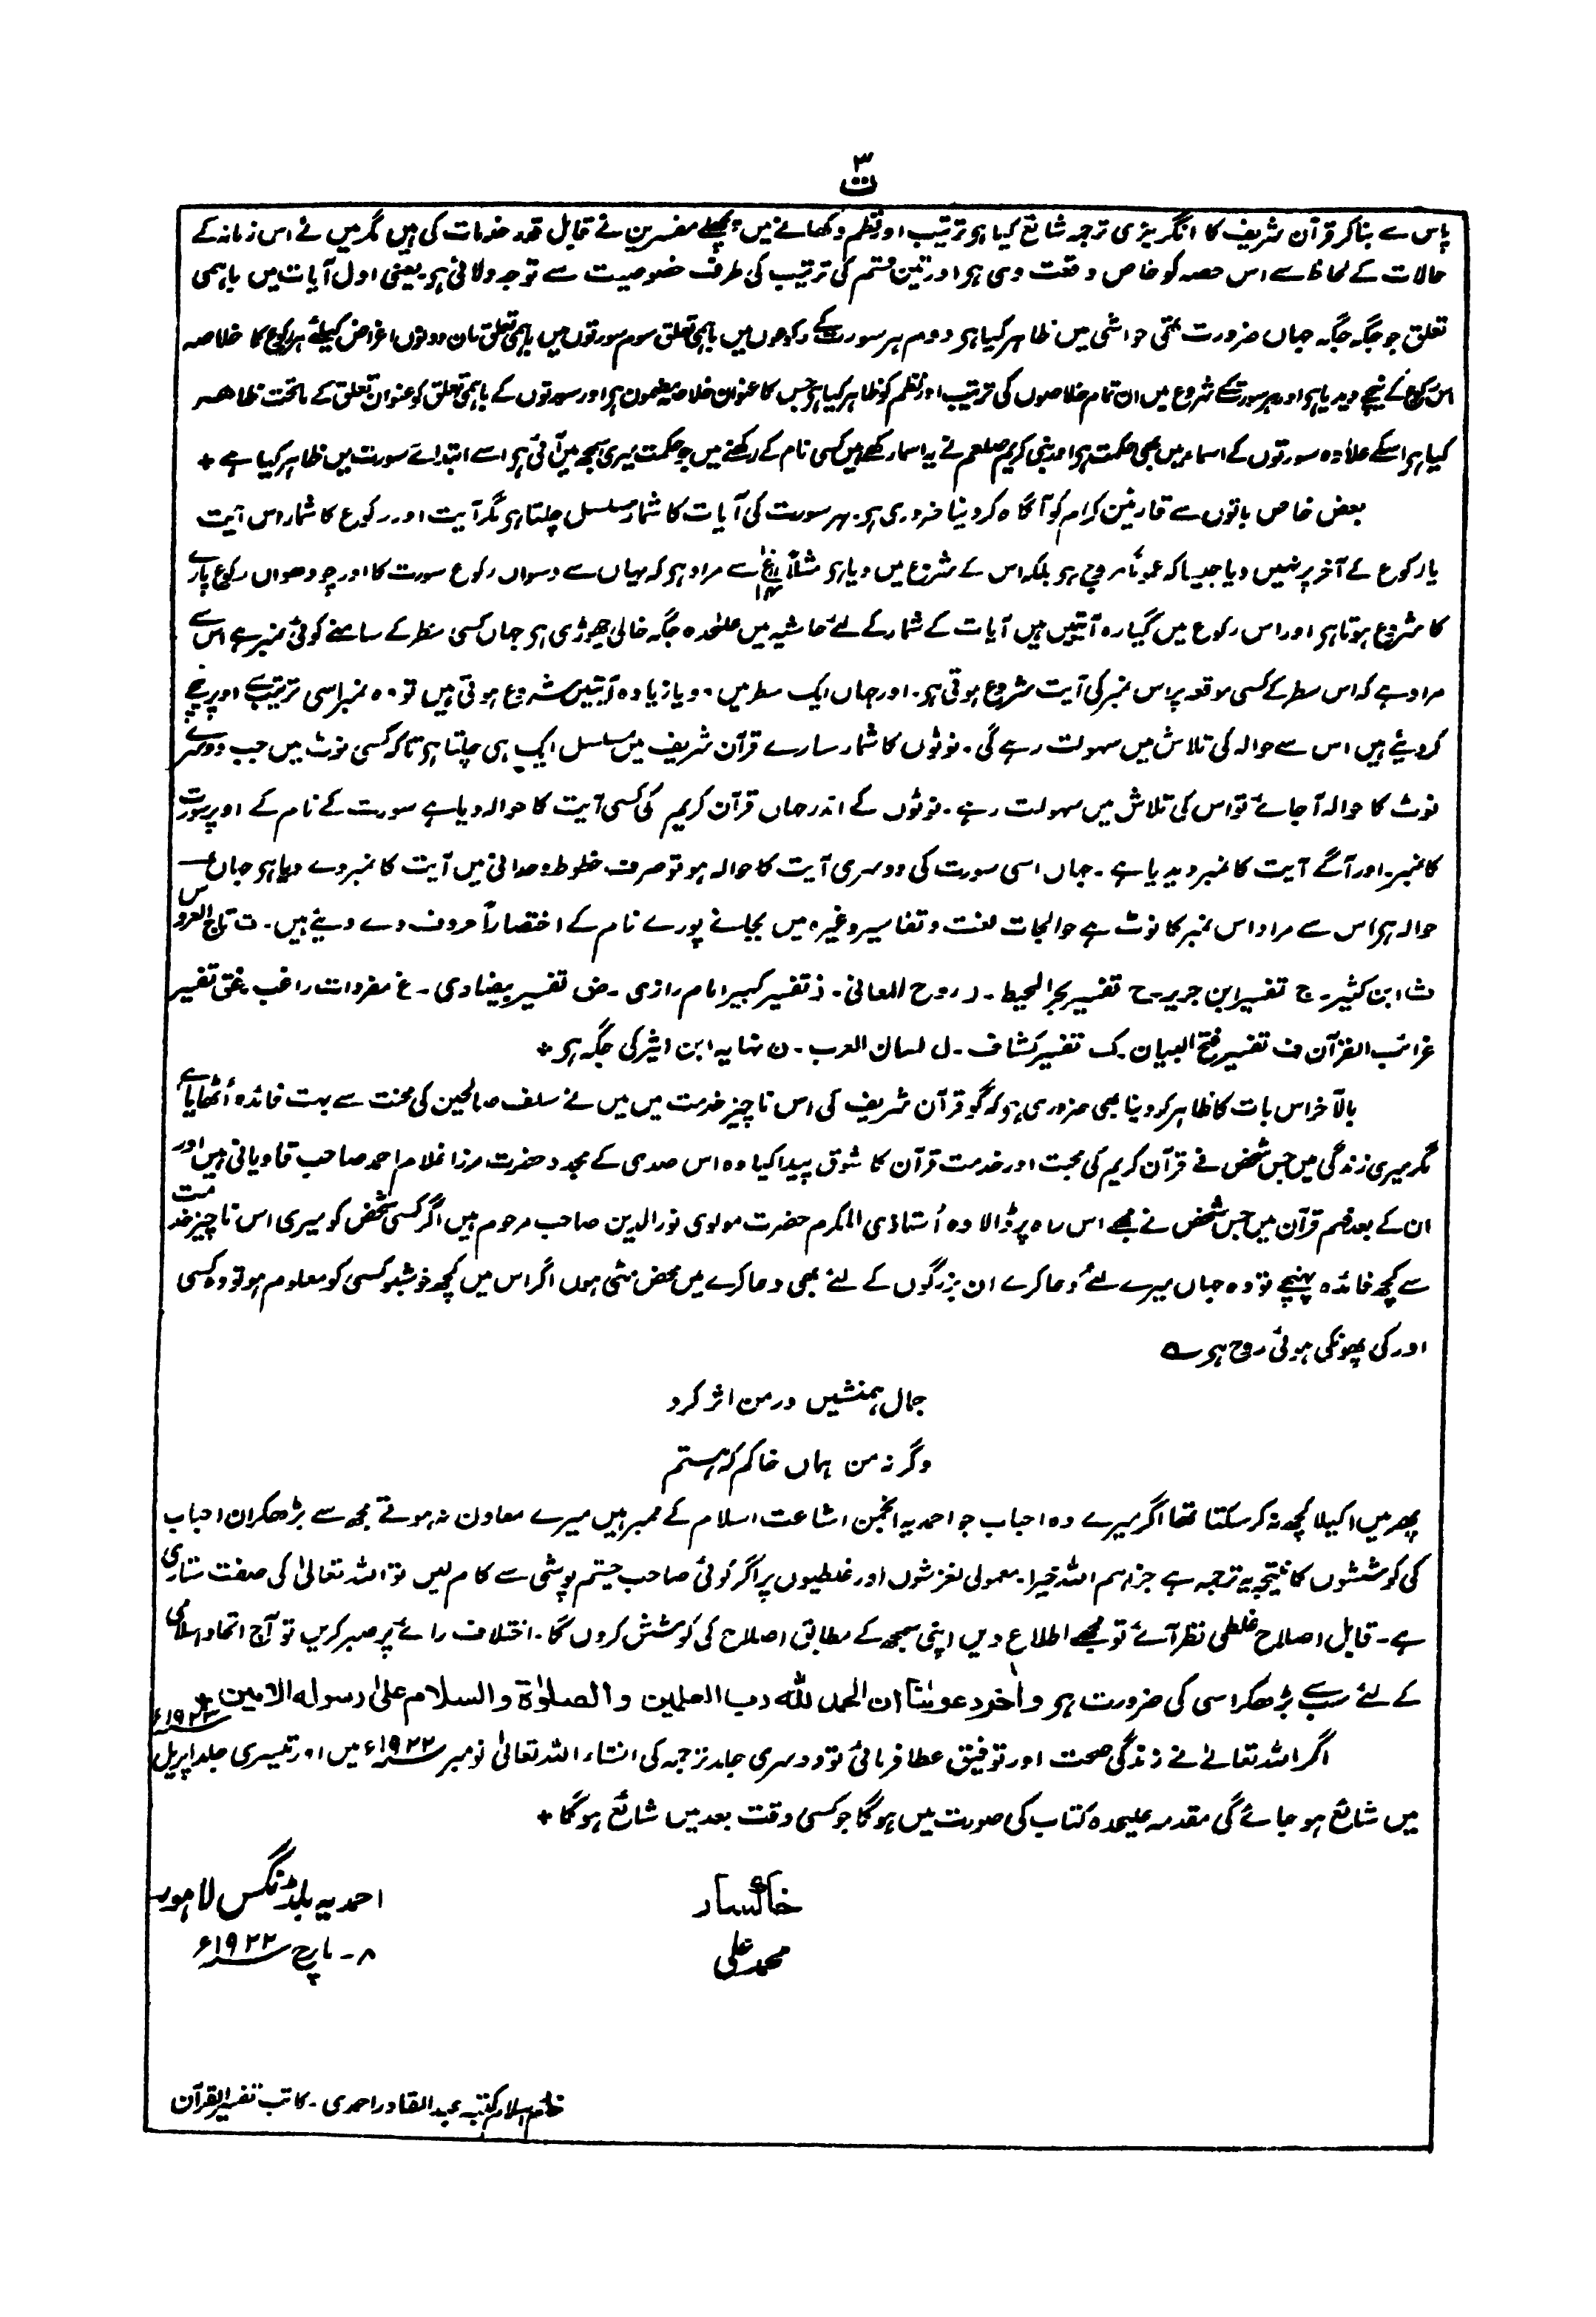 ۳
ت
پاس سے بنا کر قرآن شریف کا انگریزی ترجمہ شائع کیا ہو ترتیب اور نظم دکھانے میں پچھلے مفسرین نے قابل قدر خدمات کی ہیں مگر میں نے اس زمانہ کے
حالات کے لحاظ سے اس حصہ کو خاص وقعت دی ہو اور تین قسم کی ترتیب کی طرف خصوصیت سے توجہ دلائی ہو یعنی اول آیات میں باہمی
تعلق جو جگہ جگہ جہاں ضرورت تھی حواشی میں ظاہر کیا ہو دوم ہر سورت کے رکوعوں میں باہمی تعلق سوم سورتوں میں باہمی تعلق ان دونوں اغراض کیلئے ہر رکوع کا خلاصہ
اس رکوع کے نیچے دیدیا ہو اور ہر سورت کے شروع میں ان تمام خلاصوں کی ترتیب اور نظم کو ظاہر کیا ہو جس کا عنوان خلاصہ مضمون ہو اور سورتوں کے باہمی تعلق کو عنوان تعلق کے ماتحت ظاہر
کیا ہو اسکے علاوہ سورتوں کے اسماء میں بھی حکمت ہو اور نبی کریم صلعم نے یہ اسماء رکھے ہیں کسی نام کے رکھنے میں جو حکمت میری سمجھ میں آئی ہو اسے ابتدائے سورت میں ظاہر کیا ہے +
بعض خاص باتوں سے قارئین کرام کو آگاہ کر دینا ضروری ہو۔ ہر سورت کی آیات کا شمار مسلسل چلتا ہو مگر آیت اور رکوع کا شمار اس آیت
یا رکوع کے آخر پر نہیں دیا جیسا کہ عموماً مروج ہو بلکہ اس کے شروع میں دیا ہو مثلاً سے مراد ہو کہ یہاں سے دسواں رکوع سورت کا اور چودھواں رکوع پارے
کا شروع ہوتا ہو اور اس رکوع میں گیارہ آیتیں ہیں آیات کے شمار کے لئے حاشیہ میں علیحدہ جگہ خالی چھوڑی ہو جہاں کسی سطر کے سامنے کوئی نمبر ہے اس سے
مراد ہے کہ اس سطر کے کسی موقعہ پر اس نمبر کی آیت شروع ہوتی ہو۔ اور جہاں ایک سطر میں دو یا زیادہ آیتیں شروع ہوتی ہیں تو وہ نمبر اسی ترتیب سے اوپر نیچے
کردیئے ہیں اس سے حوالہ کی تلاش میں سہولت رہے گی۔ نوٹوں کا شمار سارے قرآن شریف میں مسلسل ایک ہی چلتا ہو تاکہ کسی نوٹ میں جب دوسرے
نوٹ کا حوالہ آجائے تو اس کی تلاش میں سہولت رہے۔ نوٹوں کے اندر جہاں قرآن کریم کی کسی آیت کا حوالہ دیا ہے سورت کے نام کے اوپر سورت
کا نمبر۔ اور آگے آیت کا نمبر دیدیا ہے۔ جہاں اسی سورت کی دوسری آیت کا حوالہ ہو تو صرف خطوط وحدانی میں آیت کا نمبر دے دیا ہو جہاں
حوالہ ہو اس سے مراد اس نمبر کا نوٹ ہے حوالجات لغت و تفاسیر وغیرہ میں بجائے پورے نام کے اختصاراً حروف دے دیئے ہیں۔ ت تاج العروس
ث ابن کثیر۔ ج تفسیر ابن جریر۔ ح تفسیر بحر المحیط۔ ر روح المعانی۔ ز تفسیر کبیر امام رازی۔ ض تفسیر بیضاوی۔ غ مفردات راغب۔ غق تفسیر
غرائب القرآن ف تفسیر فتح البیان۔ ک تفسیر کشاف۔ ل لسان العرب۔ ن نہایہ ابن اثیر کی جگہ ہو +
بالآخر اس بات کا ظاہر کر دینا بھی ضروری ہو کہ گو قرآن شریف کی اس ناچیز خدمت میں میں نے سلف صالحین کی محنت سے بہت فائدہ اُٹھایا ہے
مگر میری زندگی میں جس شخص نے قرآن کریم کی محبت اور خدمت قرآن کا شوق پیدا کیا وہ اس صدی کے مجدد حضرت مرزا غلام احمد صاحب قادیانی ہیں اور
ان کے بعد فہم قرآن میں جس شخص نے مجھے اس راہ پر ڈالا وہ اُستاذی المکرم حضرت مولوی نور الدین صاحب مرحوم ہیں اگر کسی شخص کو میری اس ناچیز خدمت
سے کچھ فائدہ پہنچے تو وہ جہاں میرے لئے دعا کرے ان بزرگوں کے لئے بھی دعا کرے میں محض مٹی ہوں اگر اس میں کچھ خوشبو کسی کو معلوم ہو تو وہ کسی
اور کی پھونکی ہوئی روح ہو ؎
جمال ہمنشیں در من اثر کرد
وگرنہ من ہماں خاکم کہ ہستم
پھر میں اکیلا کچھ نہ کر سکتا تھا اگر میرے وہ احباب جو احمدیہ انجمن اشاعت اسلام کے ممبر ہیں میرے معاون نہ ہوتے مجھ سے بڑھکر ان احباب
کی کوششوں کا نتیجہ یہ ترجمہ ہے جزاہم اللہ خیرا۔ معمولی لغزشوں اور غلطیوں پر اگر کوئی صاحب چشم پوشی سے کام لیں تو اللہ تعالیٰ کی صفت ستاری
ہے۔ قابل اصلاح غلطی نظر آئے تو مجھے اطلاع دیں اپنی سمجھ کے مطابق اصلاح کی کوشش کروں گا۔ اختلاف رائے پر صبر کریں تو آج اتحاد اسلامی
کے لئے سب سے بڑھکر اسی کی ضرورت ہو واٰخر دعوٰنا ان الحمد للہ رب العلمین والصلوٰۃ والسلام علیٰ رسولہ الامین +
اگر اللہ تعالےٰ نے زندگی صحت اور توفیق عطا فرمائی تو دوسری جلد ترجمہ کی انشاء اللہ تعالیٰ نومبر ۱۹۲۲ء میں اور تیسری جلد اپریل ۱۹۲۳ء
میں شائع ہو جائے گی مقدمہ علیحدہ کتاب کی صورت میں ہوگا جو کسی وقت بعد میں شائع ہوگا +
خاکسار
محمد علی
احمدیہ بلڈنگس لاہور
۸۔ مارچ ۱۹۲۲ء
خادم اسلام کتبہ عبد القادر احمدی۔ کاتب تفسیر القرآن